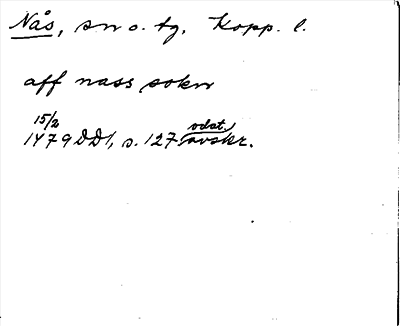 Nås, sn o. tg, Kopp. l.
aff nass sokn
15/2
1479 DD1, s. 127 odat. avskr.